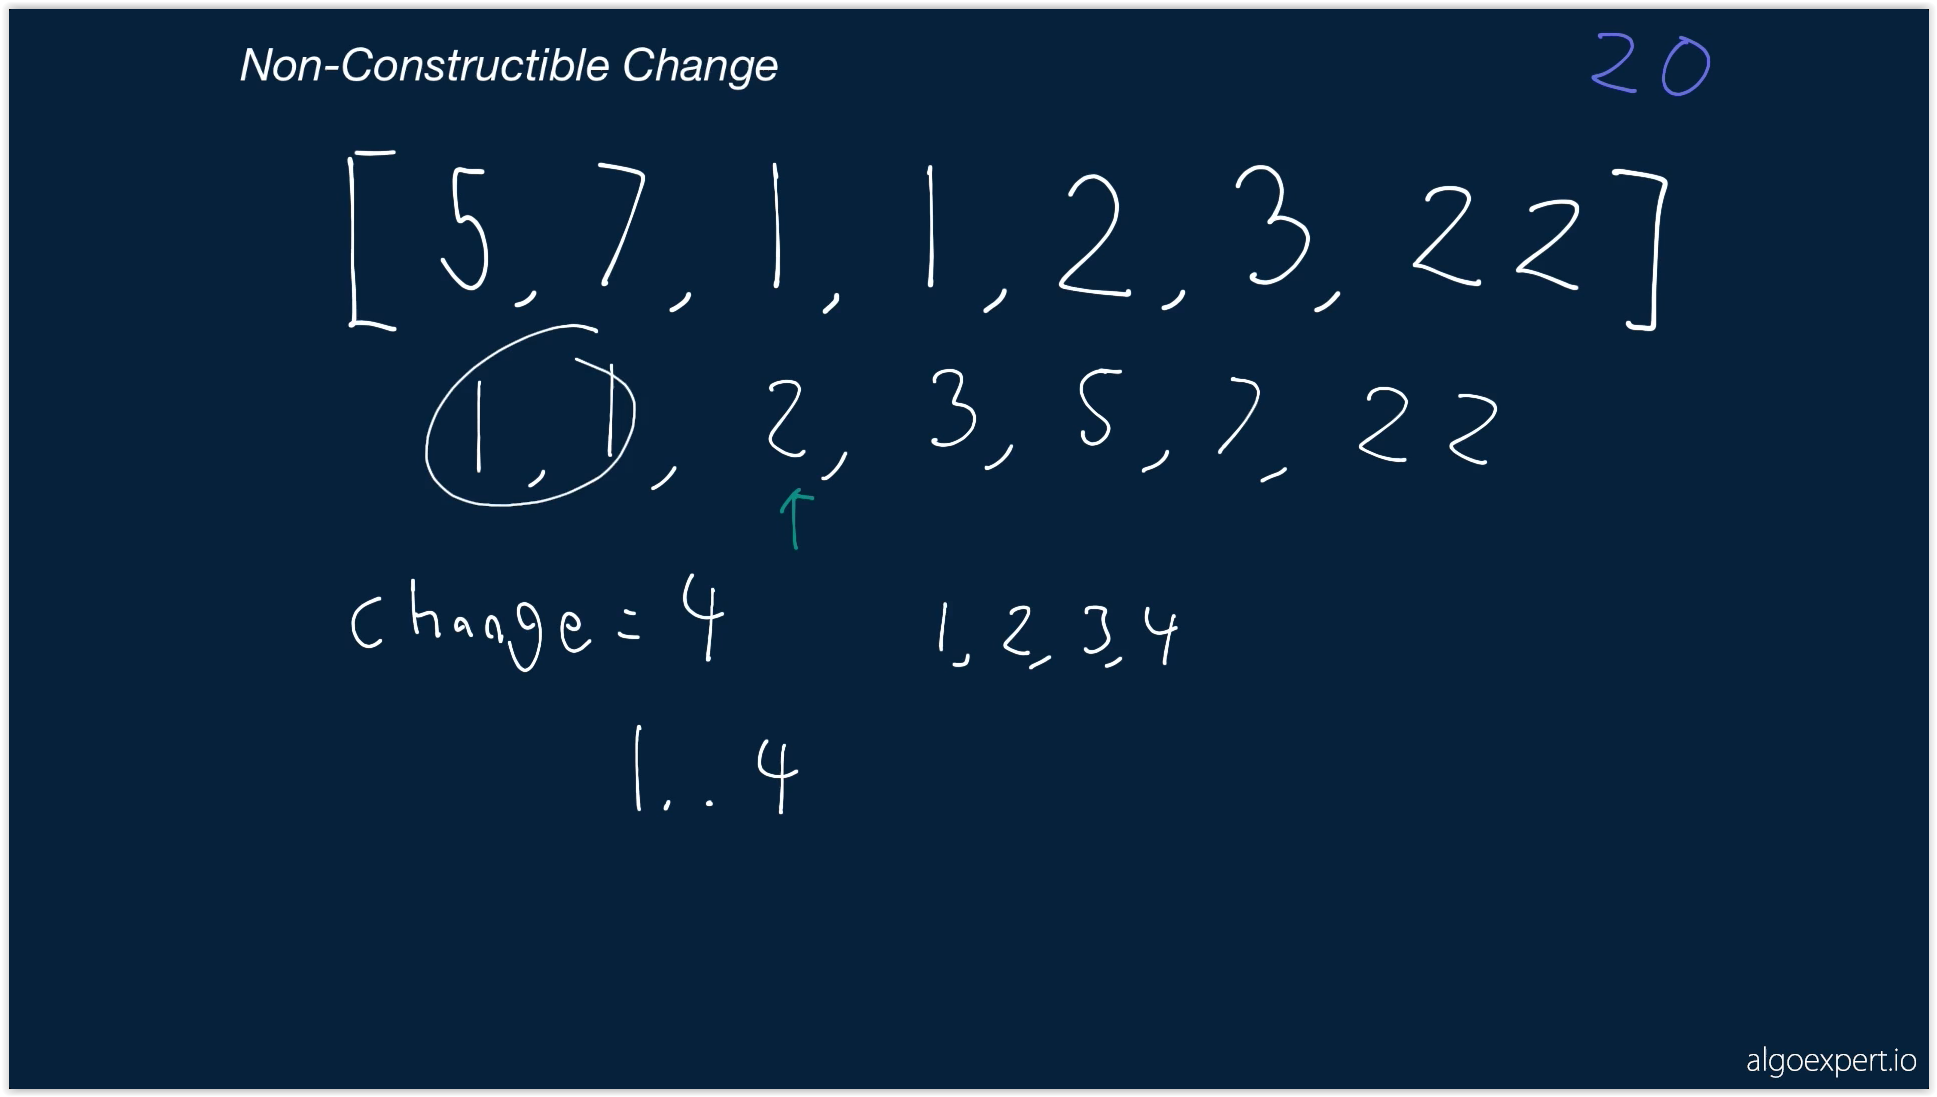 Non-Constructible Change
20
[5, 7, 1, 1, 2, 3, 22]
1, 1, 2, 3, 5, 7, 22
change = 4
1, 2, 3, 4
1..4
algoexpert.io